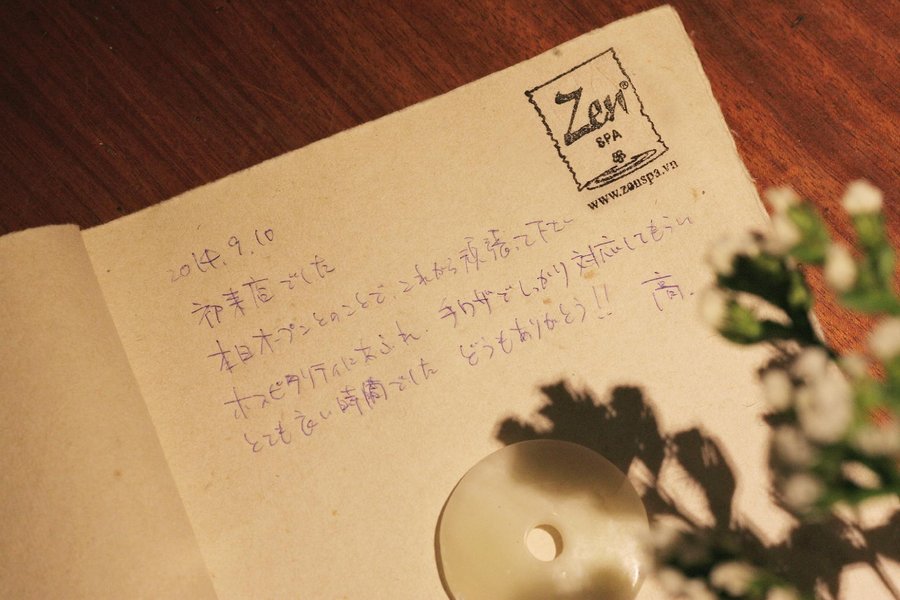 Zen®
SPA
www.zenspa.vn
2014.9.10
初来店でした
本日オープンとのことで これから頑張って下さい
ホスピタリティにあふれ、手ワザでしっかり対応してもらい
とても良い時間でした どうもありがとう!! 高.